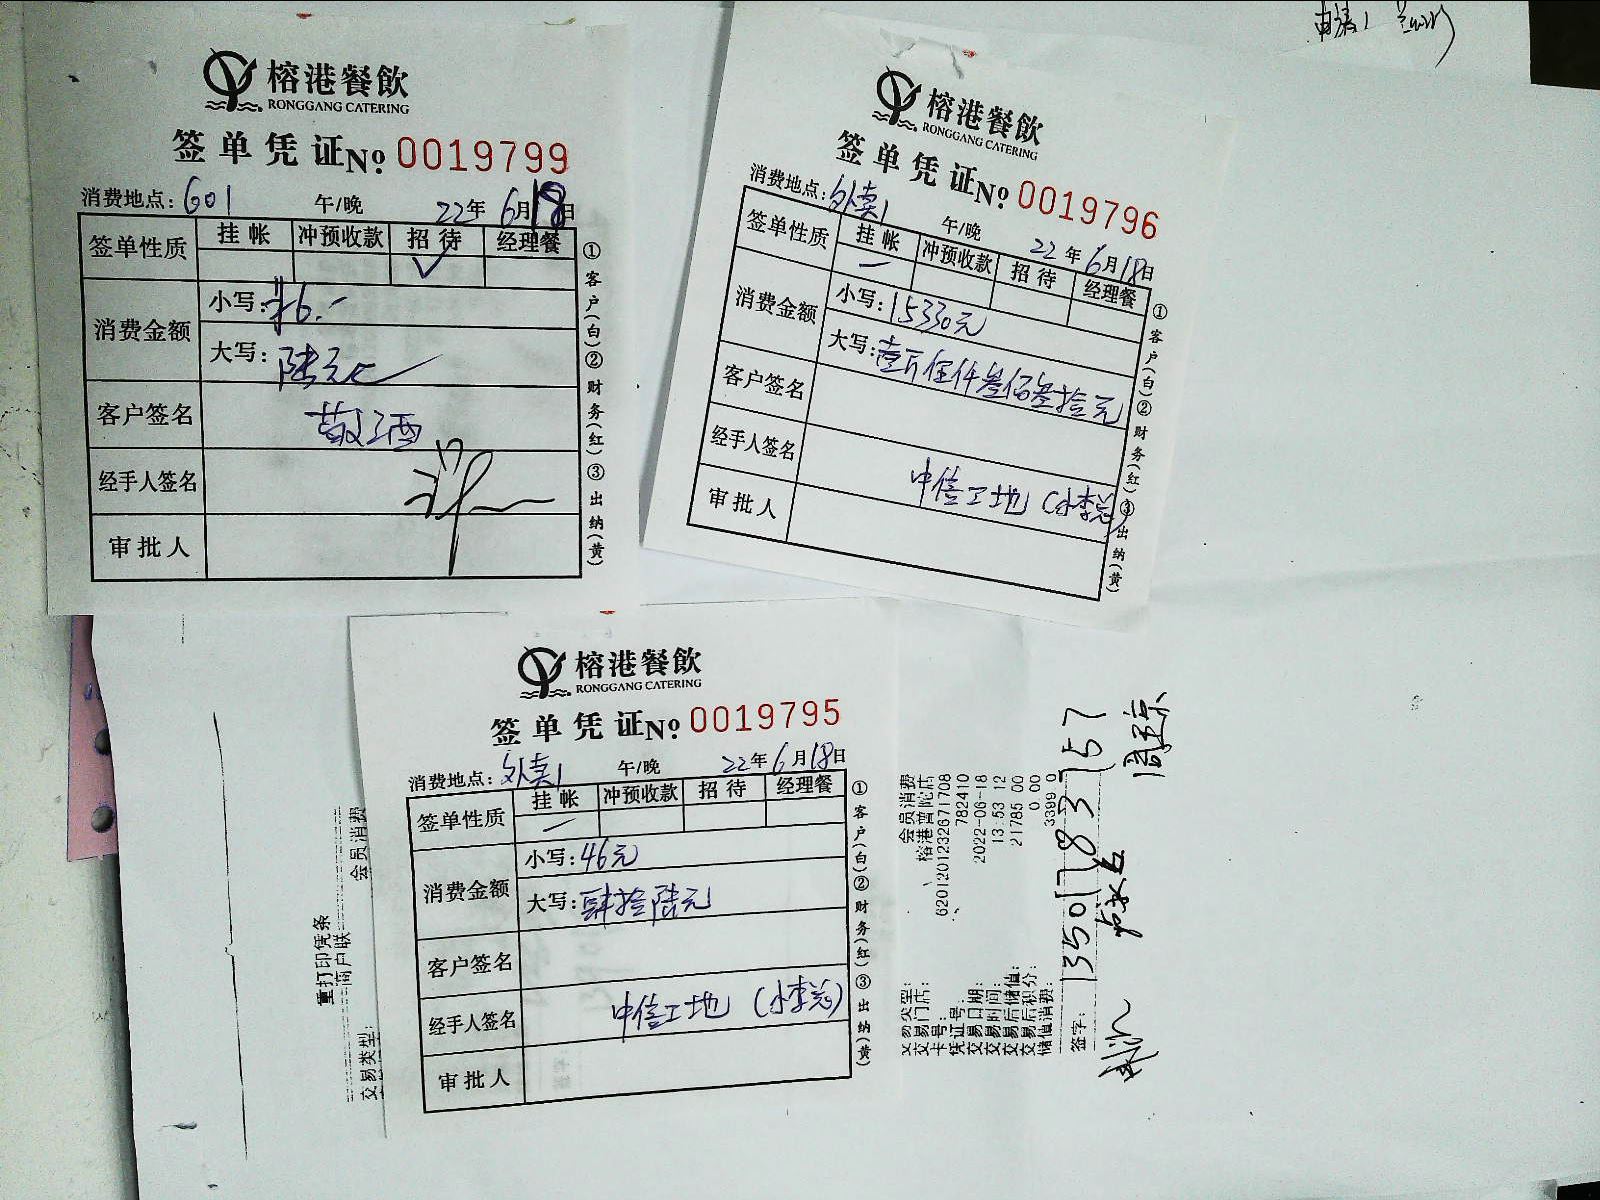 榕港餐飲
RONGGANG CATERING
签单凭证 No 0019799
消费地点：601 午/晚 22年6月18日
签单性质 挂帐 冲预收款 招待 经理餐
✓
消费金额
小写：¥6.-
大写：陆元
客户签名 敬酒
经手人签名
审批人
①客户(白)②财务(红)③出纳(黄)
榕港餐飲
RONGGANG CATERING
签单凭证 No 0019796
消费地点：外卖1 午/晚 22年6月18日
签单性质 挂帐 冲预收款 招待 经理餐
消费金额
小写：15330元
大写：壹万伍仟叁佰叁拾元
客户签名
经手人签名 中信工地（小李总）
审批人
①客户(白)②财务(红)③出纳(黄)
榕港餐飲
RONGGANG CATERING
签单凭证 No 0019795
消费地点：外卖1 午/晚 22年6月18日
签单性质 挂帐 冲预收款 招待 经理餐
消费金额
小写：46元
大写：肆拾陆元
客户签名
经手人签名 中信工地（小李总）
审批人
①客户(白)②财务(红)③出纳(黄)
重打印凭条
商户联
交易类型： 会员消费
交易类型： 会员消费
交易门店： 榕港普陀店
卡号： 6201201232671708
凭证号： 782410
交易日期： 2022-06-18
交易时间： 13 53 12
交易后储值： 21785 00
交易后积分： 0.00
储值消费： 3399 0
签字： 13501783157